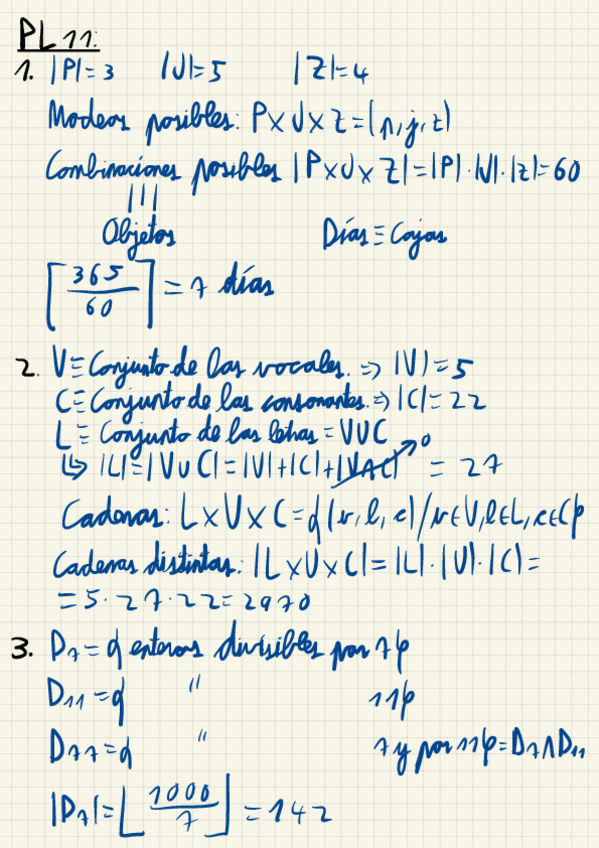 PL 11:
1. |P|=3 |J|=5 |Z|=4
Modeos posibles: P×J×Z=(p,j,z)
Combinaciones posibles |P×J×Z|=|P|·|J|·|Z|=60
|||
Objetos Días≡Cajas
⌈365/60⌉=7 días
2. V≡Conjunto de las vocales.⇒|V|=5
C≡Conjunto de las consonantes.⇒|C|=22
L≡Conjunto de las letras=V∪C
↳|L|=|V∪C|=|V|+|C|+|V∩C|↗0=27
Cadenas: L×V×C={(v,l,c)/v∈V,l∈L,c∈C}
Cadenas distintas: |L×V×C|=|L|·|V|·|C|=
=5·27·22=2970
3. D7={enteros divisibles por 7}
D11={ " 11}
D77={ " 7 y por 11}=D7∩D11
|D7|=⌊1000/7⌋=142